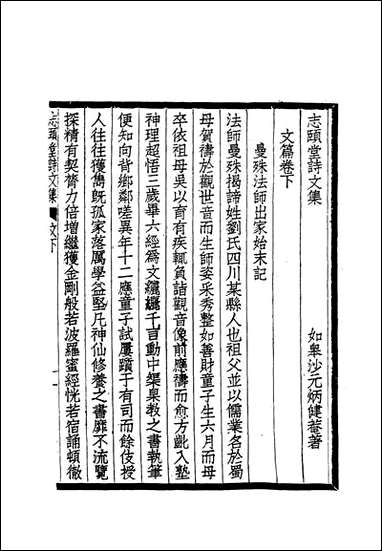 志頤堂詩文集
如皋沙元炳健菴著
文篇卷下
曼殊法師出家始末記
法師曼殊揭諦姓劉氏四川某縣人也祖父並以儒業名於蜀
母賀禱於觀世音而生師姿采秀整如善財童子生六月而母
卒依祖母吳以育有疾輒負詣觀音像前應禱而愈方齔入塾
神理超悟三歲畢六經為文纚纚千言動中榘臬教之書執筆
便知向背鄉鄰嗟異年十二應童子試屢躓于有司而餘伎授
人往往獲雋既孤家落厲學益堅凡神仙修養之書靡不流覽
探精有契膂力倍增繼獲金剛般若波羅蜜經恍若宿誦頓徹
志頤堂詩文集
文下
一